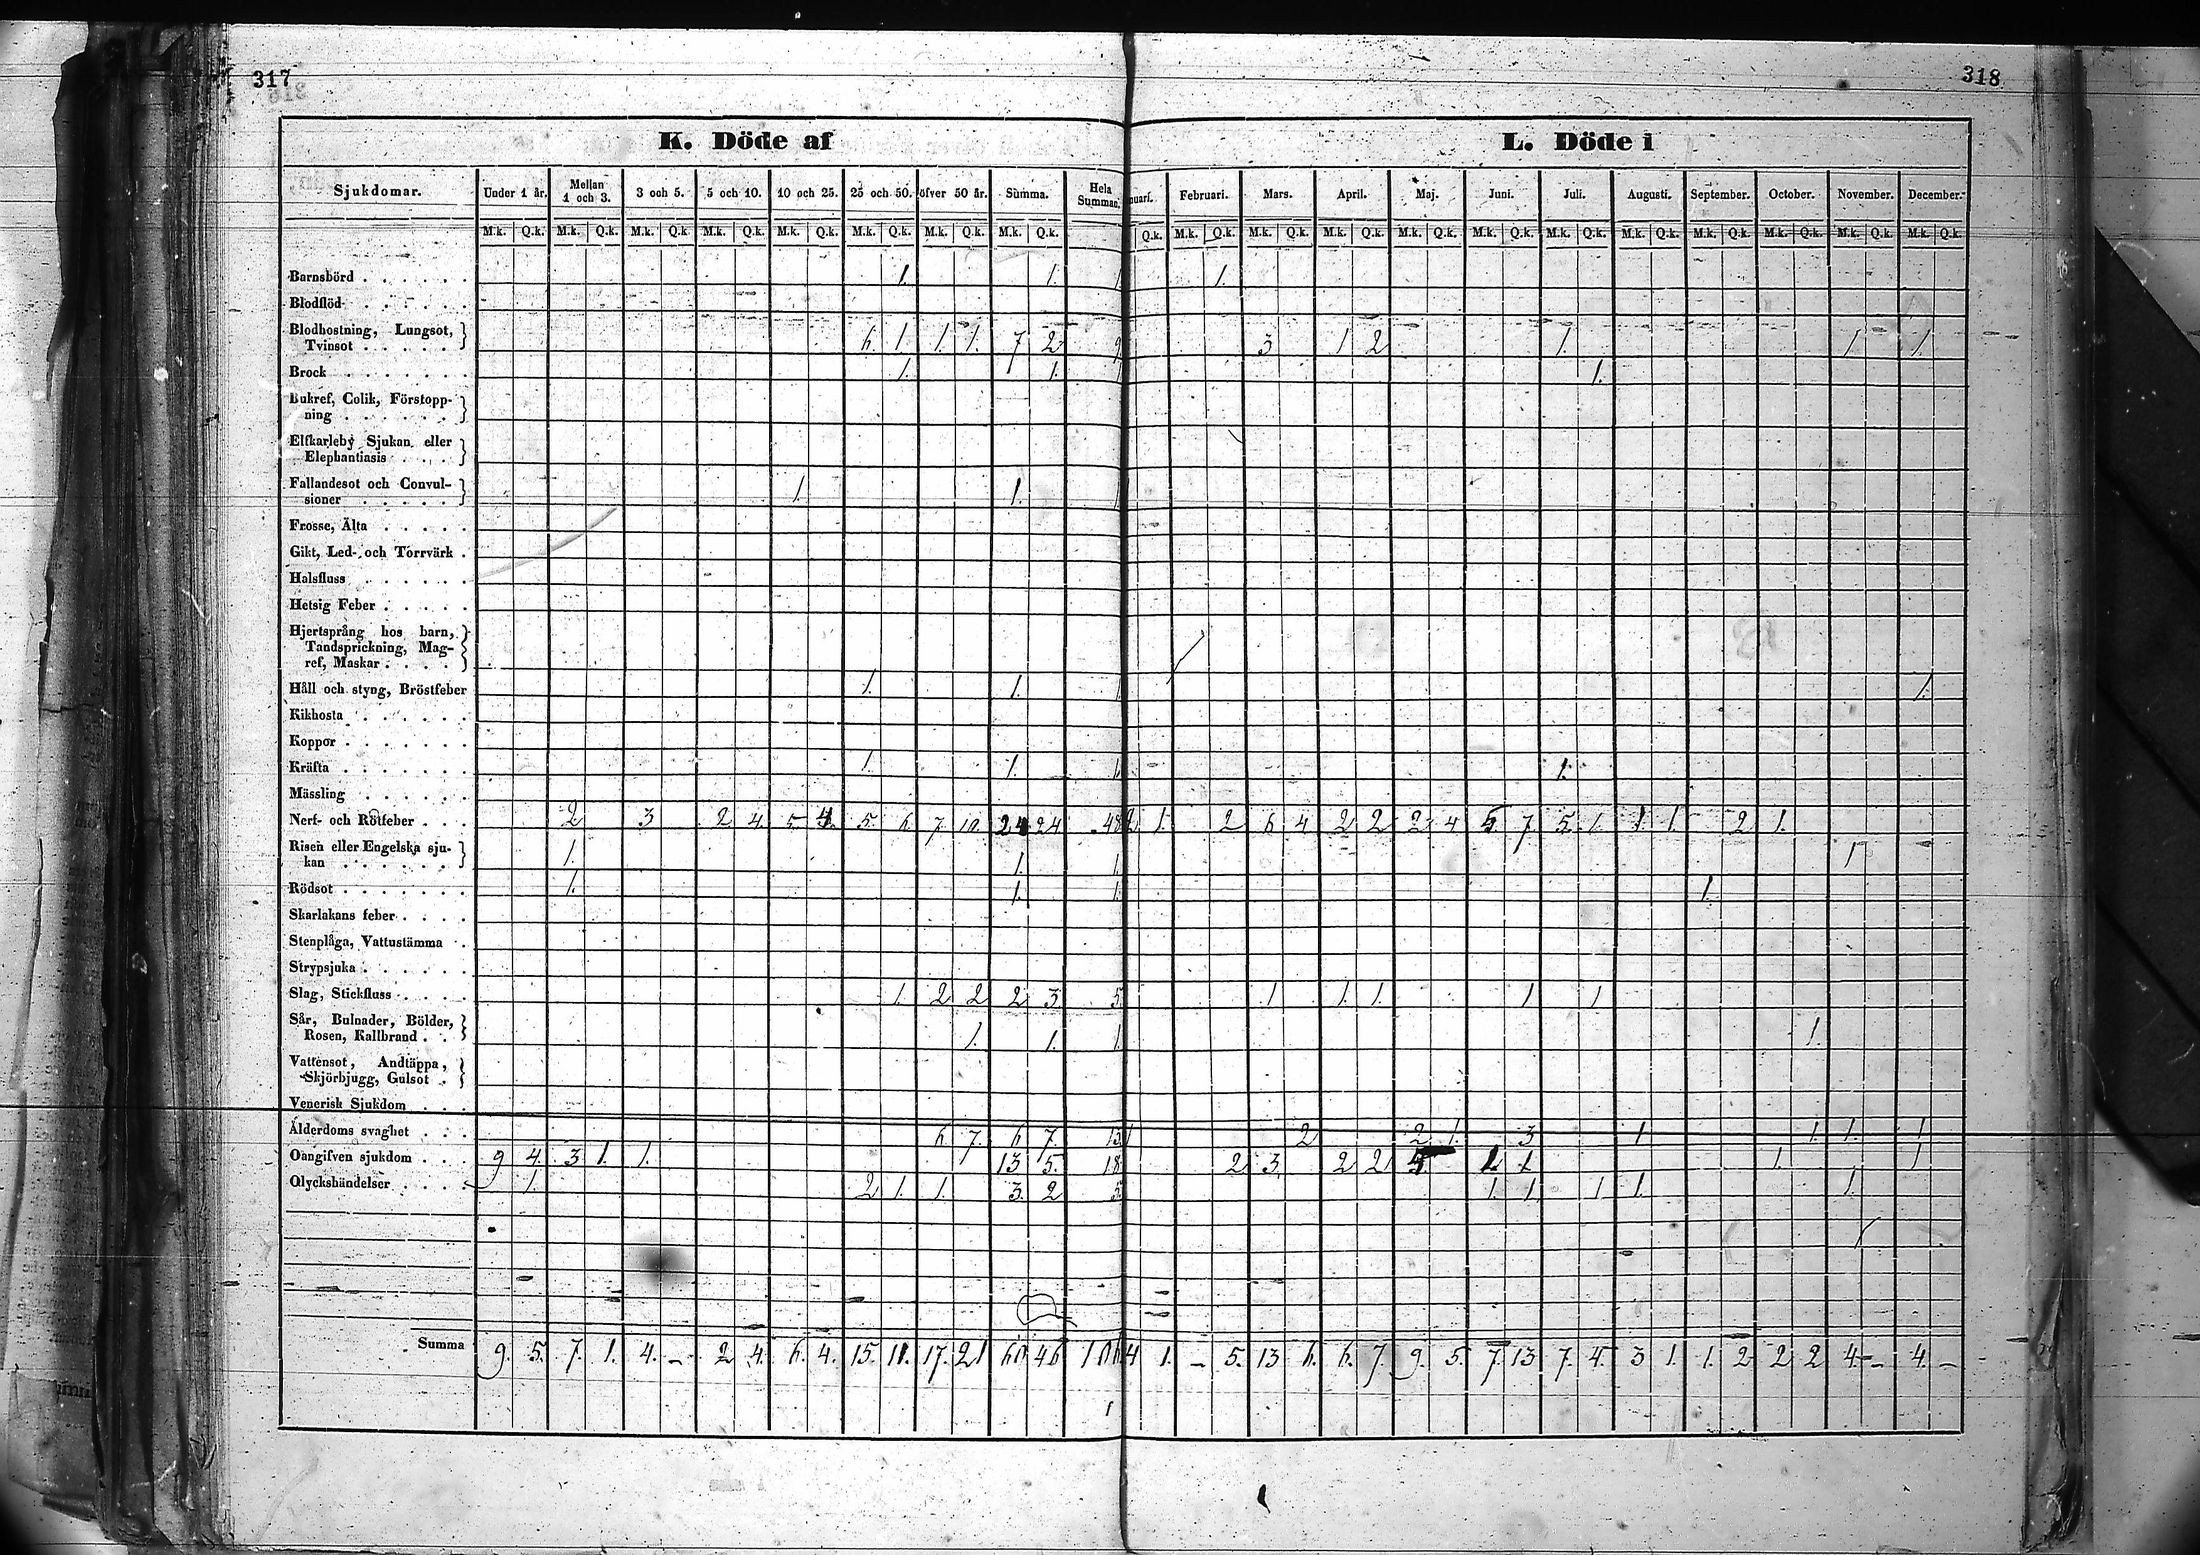 317
318
K. Döde af
L. Döde i
Sjukdomar. Under 1 år. Mellan 1 och 3. 3 och 5. 5 och 10. 10 och 25. 25 och 50. öfver 50 år. Summa. Hela Summan. nuari. Februari. Mars. April. Maj. Juni. Juli. Augusti. September. October. November. December.
M.k. Q.k. M.k. Q.k. M.k. Q.k. M.k. Q.k. M.k. Q.k. M.k. Q.k. M.k. Q.k. M.k. Q.k. Q.k. M.k. Q.k. M.k. Q.k. M.k. Q.k. M.k. Q.k. M.k. Q.k. M.k. Q.k. M.k. Q.k. M.k. Q.k. M.k. Q.k. M.k. Q.k. M.k. Q.k.
Barnsbörd 1. 1. 1 1.
Blodflöd
Blodhostning, Lungsot,
Tvinsot 6. 1 1. 1. 7 2 9 3 1 2 1. 1 1.
Brock 1. 1. 1 1.
Bukref, Colik, Förstopp-
ning
Elfkarleby Sjukan eller
Elephantiasis
Fallandesot och Convul-
sioner 1. 1. 1 1
Frosse, Älta
Gikt, Led- och Torrvärk
Halsfluss
Hetsig Feber
Hjertsprång hos barn,
Tandsprickning, Mag-
ref, Maskar
Håll och styng, Bröstfeber 1. 1. 1 1.
Kikhosta
Koppor
Kräfta 1. 1. 1. 1.
Mässling
Nerf- och Rötfeber 2 3 2 4. 5. 4. 5. 6 7. 10. 24 24 48 2 1. 2 6 4 2 2 2 4 5 7 5. 1. 1 1. 2 1.
Risen eller Engelska sju-
kan 1. 1. 1. 1
Rödsot 1. 1. 1. 1.
Skarlakans feber
Stenplåga, Vattustämma
Strypsjuka
Slag, Stickfluss 1. 2 2 2 3 5. 1 1. 1. 1 1
Sår, Bulnader, Bölder,
Rosen, Kallbrand 1. 1. 1 1.
Vattensot, Andtäppa,
Skjörbjugg, Gulsot
Venerisk Sjukdom
Ålderdoms svaghet 6. 7. 6 7. 13 1 2 2 1. 3 1 1. 1. 1
Oangifven sjukdom 9 4. 3 1. 1. 13 5. 18 2 3 2 2 1 1. 1
Olyckshändelser 1. 2 1. 1. 3. 2 5. 1. 1 1 1. 1.
Summa 9. 5. 7. 1. 4. - 2 4. 6. 4. 15. 11. 17. 21 60 46 106 4 1. - 5. 13 6. 6. 7 9. 5. 7 13 7. 4. 3 1. 1. 2 2 2 4 - 4. -